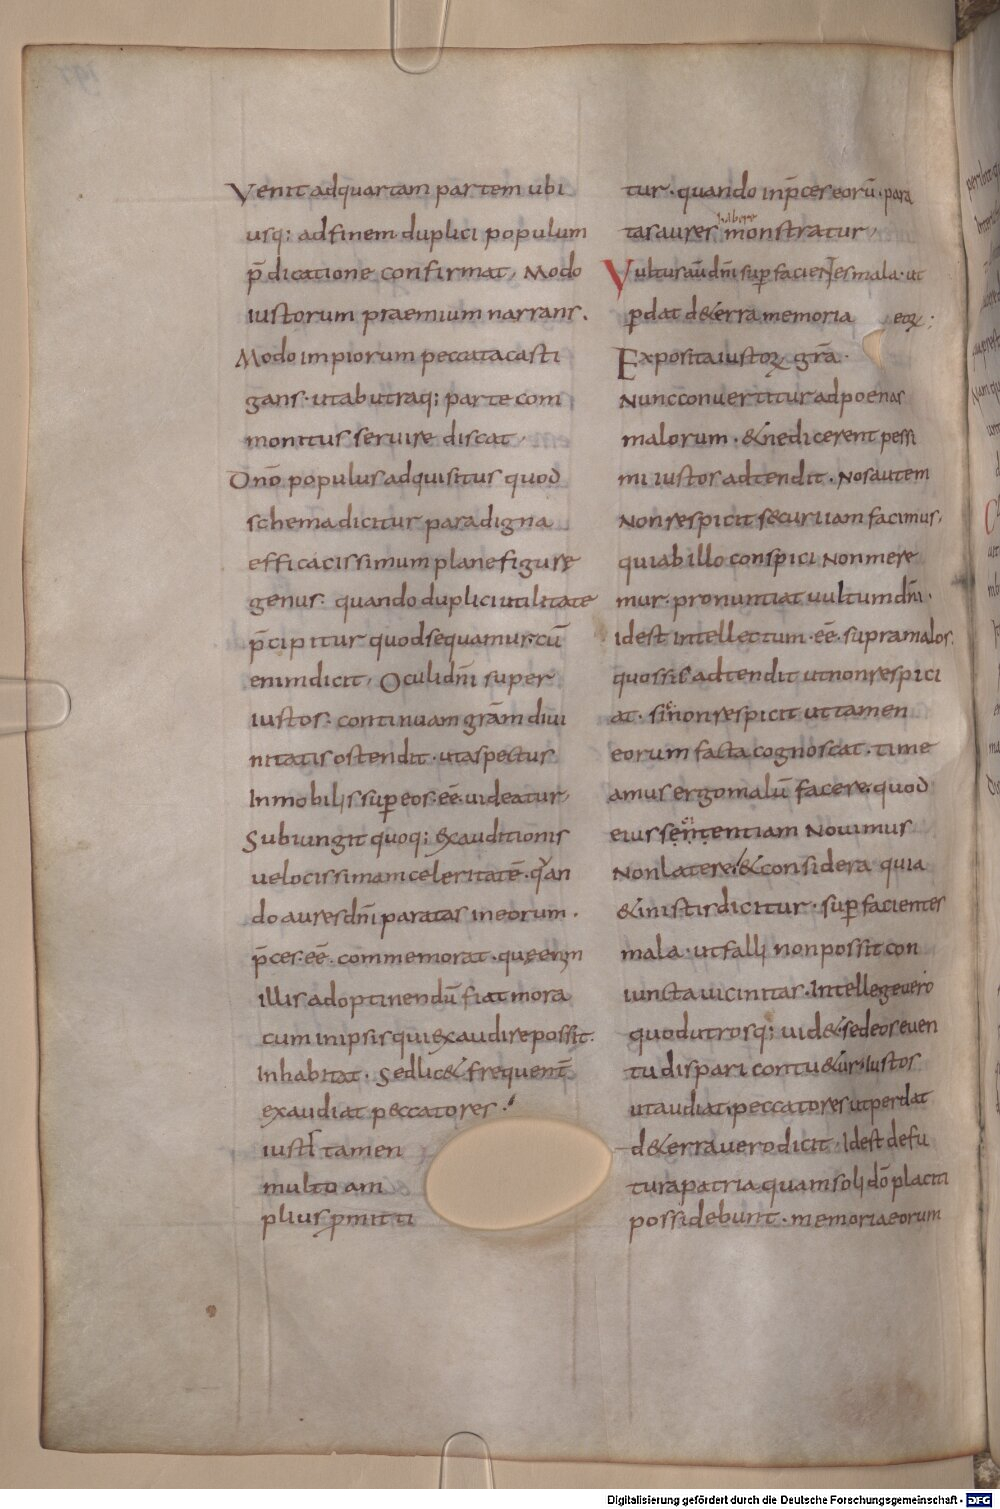 Venit adquartam partem ubi
usq; adfinem duplici populum
p̄dicatione confirmat, Modo
iustorum praemium narrans.
Modo impiorum peccata casti
gans· utab utraq; parte com
monitus seruire discat,
Dn̄o populus adquisitus quod
schema dicitur paradigna
efficacissimum plane figurę
genus· quando duplici utilitate
p̄cipitur quod sequamur· cū
enim dicit, Oculi dn̄i super
iustos· continuam grām diui
nitatis ostendit· utaspectus
Inmobilis sup̲ eos· eē· uideatur,
Subiungit quoq; exauditionis
uelocissimam celeritatē· quan
do aures dn̄i paratas in eorum·
p̄ces· eē· commemorat· quę enim
illis adoptinendū fiat mora
cum inipsis qui exaudire possit·
Inhabitat· Sed lic& frequent̄
exaudiat peccatores·
iusti tamen
multo am
plius p̲mitti
tur· quando inp̄ces eorū· para
habere
tas aures monstratur,
Vultus aū dn̄i sup̲ facientes mala· ut
p̲dat de terra memoria eorum;
Exposita iustorum grā·
Nunc conuertitur ad poenas
malorum· & ne dicerent pessi
mi iustos adtendit· Nos autem
Non respicit securi iam facimus,
quiab illo conspici Non mere
mur· pronuntiat uultum dn̄i·
id est intellectum· eē· supra malos·
quos sis adtendit ut non respici
at· si non respicit ut tamen
eorum facta cognoscat· time
amus ergo malū facere· quod
eius sententiam Nouimus
Non latere· & considera quia
& in istis dicitur· sup̲ facientes
mala· ut falli non possit con
iuncta uicinitas· Intellege uero
quod utrosq; uid& sed eos euen
tu dispari contu&ur· Iustos
ut audiat· peccatores ut perdat
d&erra uero dicit· Id est defu
tura patria quam soli dō placiti
possidebunt· memoria eorum
Digitalisierung gefördert durch die Deutsche Forschungsgemeinschaft - DFG